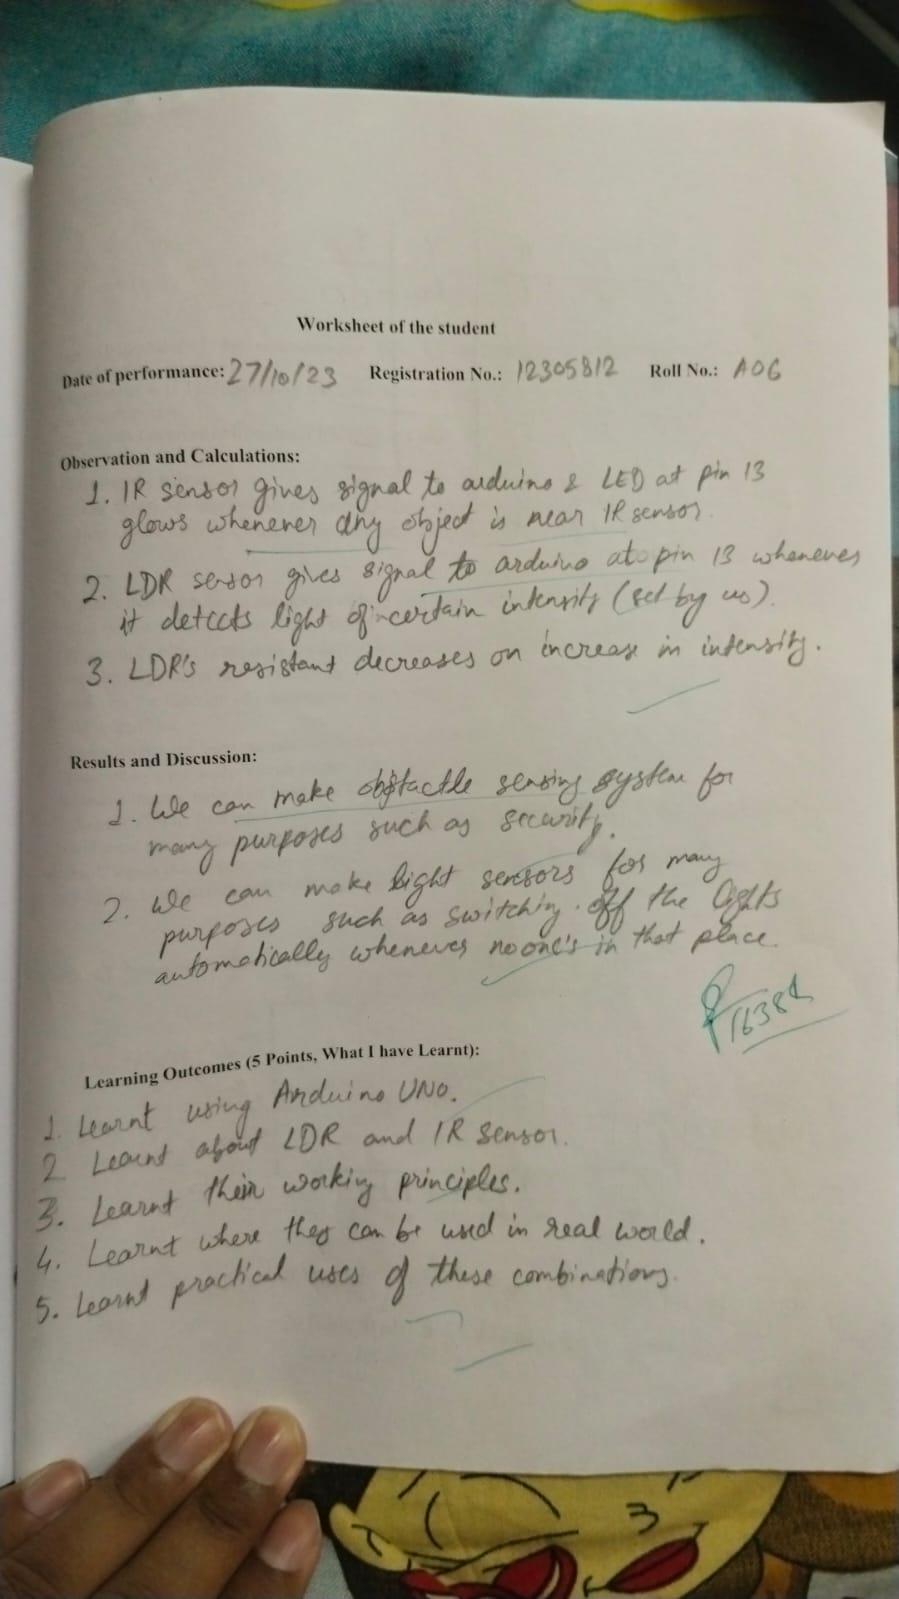 Worksheet of the student
Date of performance: 27/10/23 Registration No.: 12305812 Roll No.: A06
Observation and Calculations:
1. IR sensor gives signal to arduino & LED at pin 13
glows whenever any object is near IR sensor.
2. LDR sensor gives signal to arduino at pin 13 whenever
it detects light of certain intensity (set by us).
3. LDR's resistant decreases on increase in intensity.
Results and Discussion:
1. We can make obstactle sensing system for
many purposes such as security.
2. We can make light sensors for many
purposes such as switching off the lights
automatically whenever no one's in that place.
16381
Learning Outcomes (5 Points, What I have Learnt):
1. Learnt using Arduino UNO.
2 Learnt about LDR and IR sensor.
3. Learnt their working principles.
4. Learnt where they can be used in real world.
5. Learnt practical uses of these combinations.